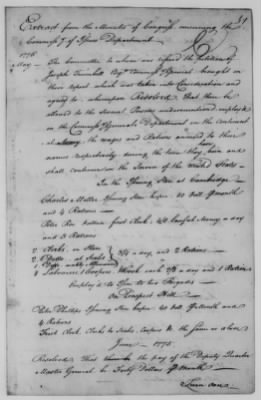 51
Extract from the Minutes of Congress concerning the
Commissy of Issues Department
1778
May — The Committee to whom was refered the Petition of
Joseph Trumbull Esqr Commissy General brought in
their report which was taken into Consideration and
agreed to whereupon Resolved That there be
allowed to the several Persons undermentioned employed
in the Commissy Generals Department on the Continental
the wages and Rations annexed to their
names respectively during the time they have been and
shall continue in the Service of the United States —
In the Issuing Store at Cambridge
Charles Miller Issuing Store keeper 40 Doll ⅌ month
and 4 Rations
first Clerk 4/ Lawful Money a day
and 3 Rations
2 Clerks in Store
a day, and 2 Rations
4 Labourers 1 Coopers Mate each a day and 1 Ration
on Prospect Hill
Peter Phillips Issuing Store keeper 40 Doll ⅌ Month and
4 Rations
First Clerk, Clerks in Stores, Coopers &c the same as above
June — 1775
Resolved That the pay of the Deputy Quarter
Master General be Forty Dollars ⅌ Month —